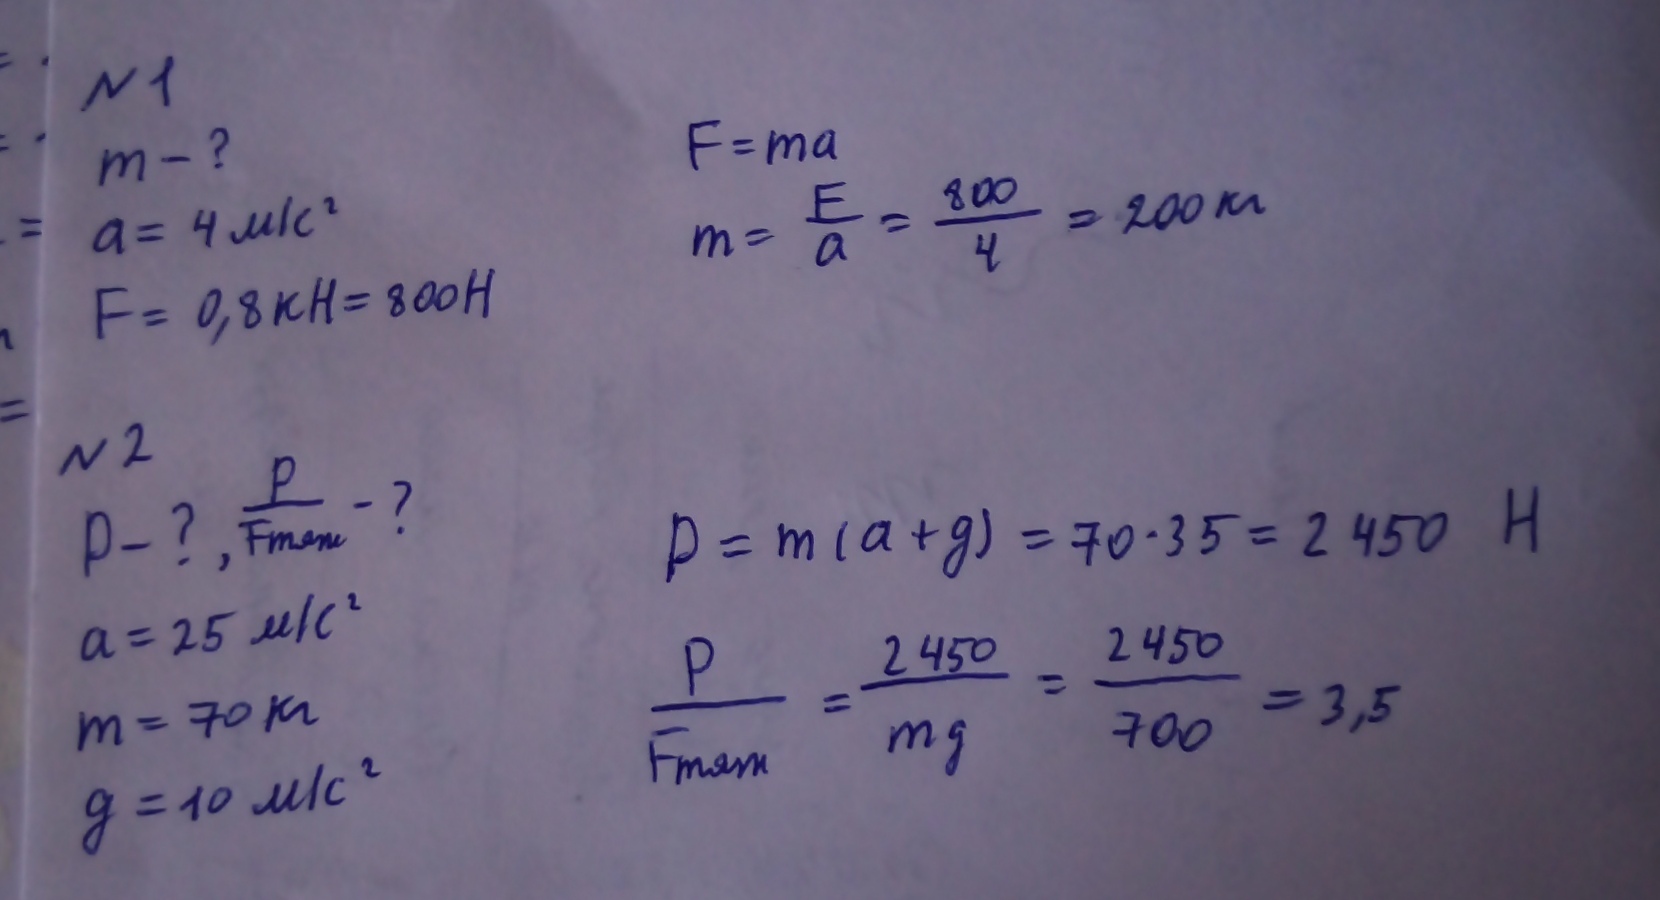 N1
m - ?
a = 4 м/с²
F = 0,8 кН = 800 Н
F = ma
m = F/a = 800/4 = 200 кг
N2
P - ?, P/Fтяж - ?
a = 25 м/с²
m = 70 кг
g = 10 м/с²
P = m(a+g) = 70·35 = 2450 Н
P/Fтяж = 2450/mg = 2450/700 = 3,5